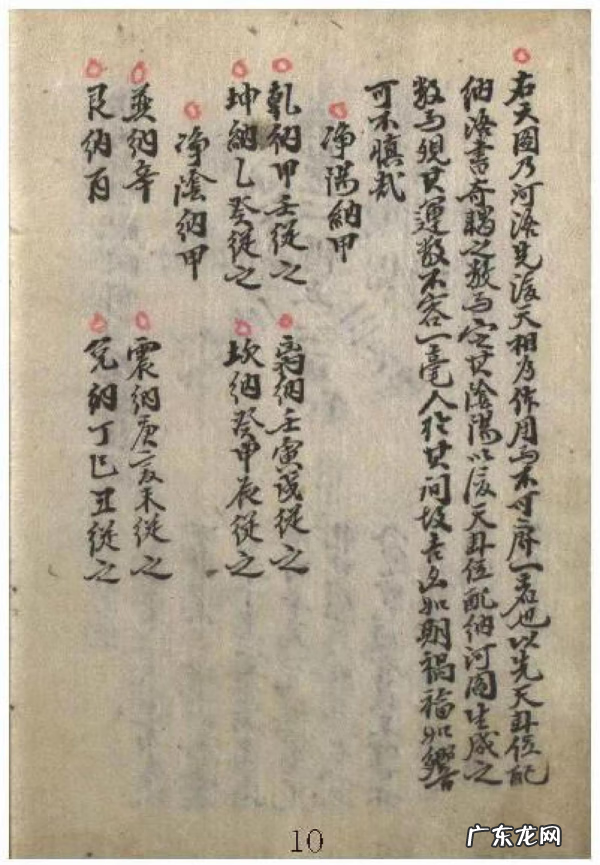 右天圖乃河洛先後天相為作用而不可廢一者也以先天卦位配
納洛書奇耦之數而定其陰陽以後天卦位配納河圖生成之
數而觀其運數不容一毫人於其间故吉凶如期禍福如響
可不慎哉
净陽納甲
乾納甲壬從之
离納壬寅戌從之
坤納乙癸從之
坎納癸申辰從之
净陰納甲
巽納辛
震納庚亥未從之
艮納丙
兌納丁巳丑從之
10
广东龙网